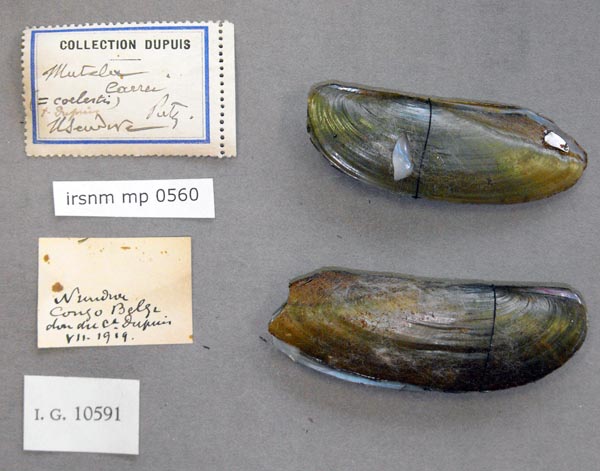 COLLECTION DUPUIS
Mutela
Carrei
(= coelestis)
Putz.
irsnm mp 0560
Congo Belge
don du Ct. Dupuis
VII. 1919.
I. G. 10591